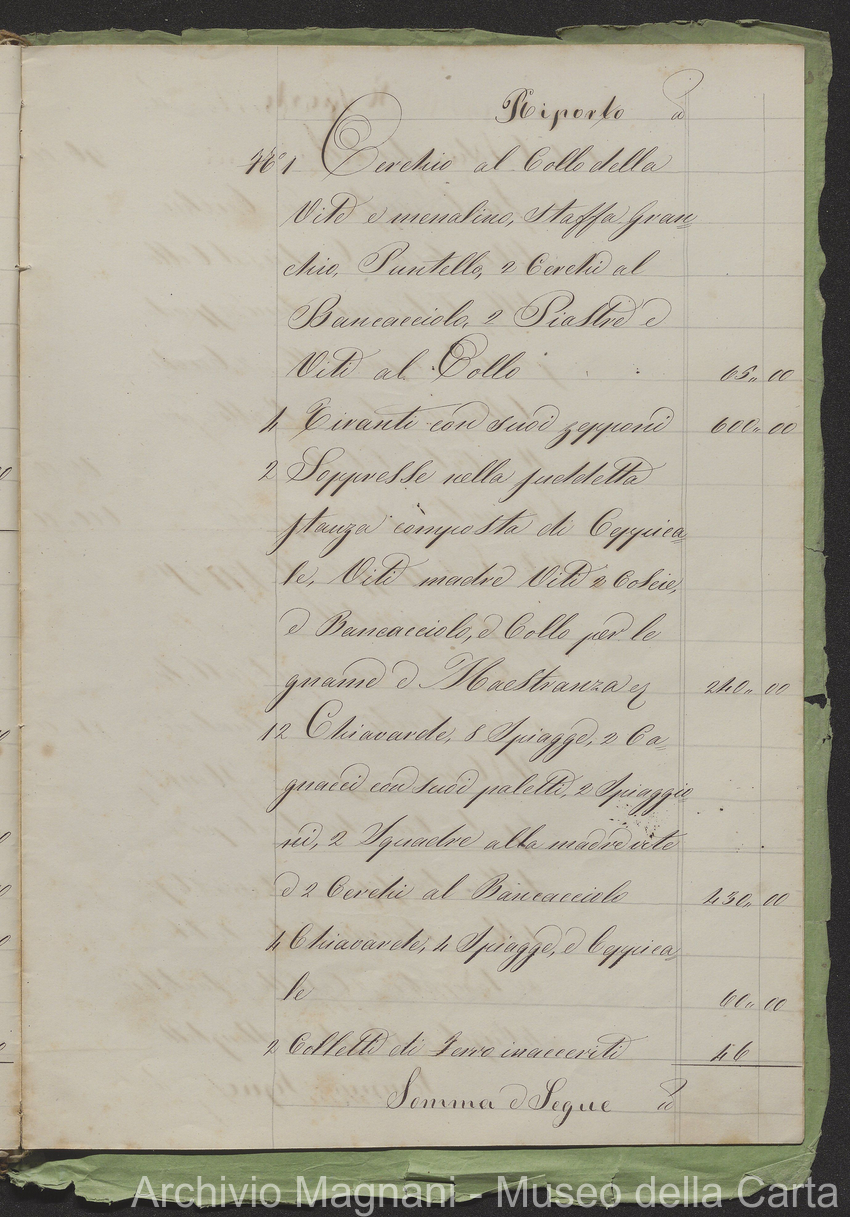 Riporto
N.o 1 Cerchio al Collo della
Vite e menalino, Staffa Gran=
chio, Puntello, 2 Cerchi al
Bancacciolo, 2 Piastre e
Vite al Collo 65,, 00
4 Tiranti con suoi zepponi 600,, 00
2 Soppresse nella suddetta
stanza composta di Ceppica=
le, Viti madre Viti 2 Coscie,
e Bancacciolo, e Collo per le
gname e Maestranza 240,, 00
12 Chiavarde, 8 Spiagge, 2 Ca=
gnacci con suoi paletti, 2 Spiaggio
ni, 2 Squadre alla madrevite
e 2 Cerchi al Bancacciolo 430,, 00
4 Chiavarde, 4 Spiagge, e Ceppica=
le 60,, 00
2 Colletti di Ferro inacceriti 46
Somma e Segue
Archivio Magnani - Museo della Carta